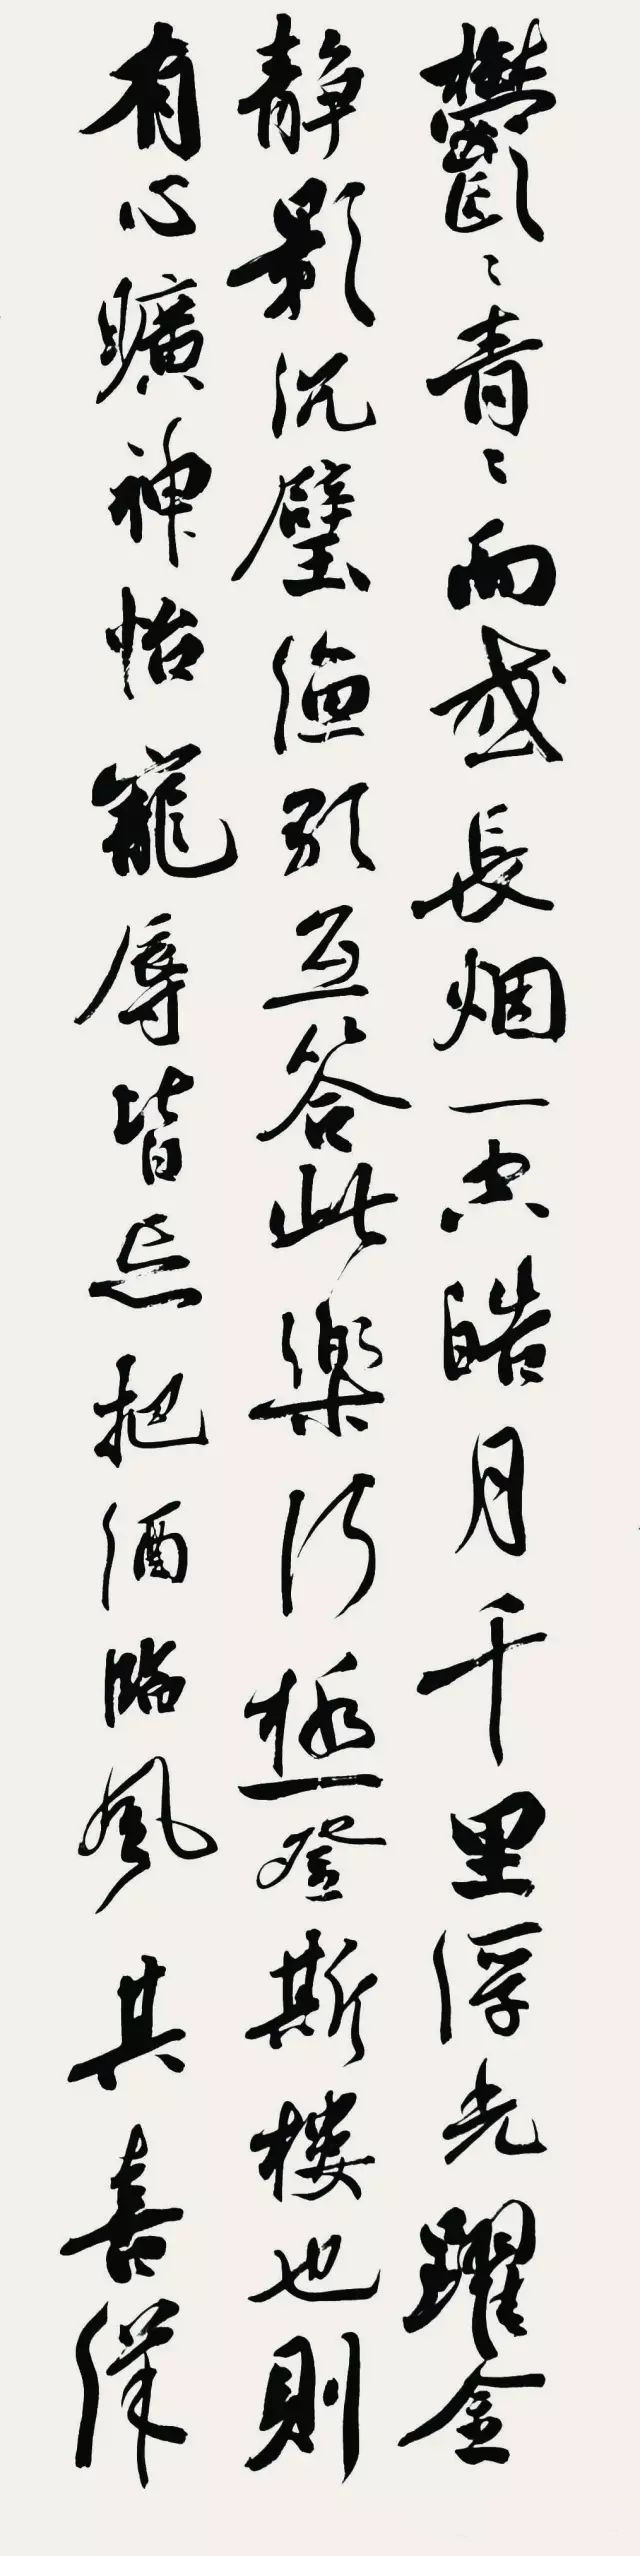 鬱〻青〻而或長烟一空皓月千里浮光躍金
静影沉璧漁歌互答此樂何極登斯樓也則
有心曠神怡寵辱皆忘把酒臨風其喜洋